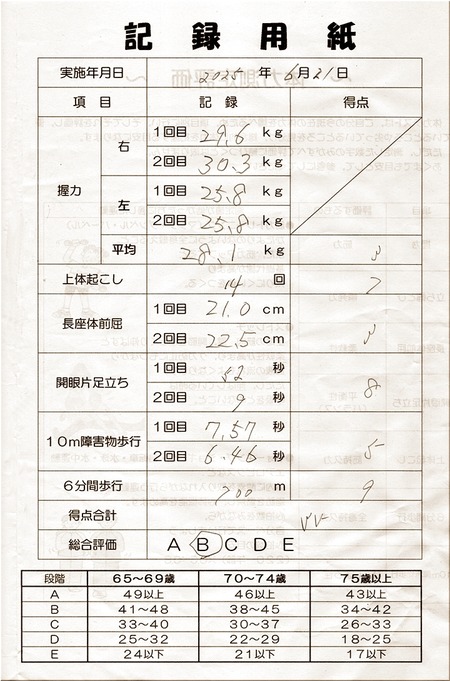 記録用紙
実施年月日 2025 年 6月21日
項目 記録 得点
握力 右 1回目 29.6 kg
2回目 30.3 kg
左 1回目 25.8 kg
2回目 25.8 kg
平均 28.1 kg 3
上体起こし 14 回 7
長座体前屈 1回目 21.0 cm 3
2回目 22.5 cm
開眼片足立ち 1回目 52 秒 8
2回目 9 秒
10m障害物歩行 1回目 7.57 秒 5
2回目 6.46 秒
6分間歩行 700 m 9
得点合計 35
総合評価 A B C D E
段階 65～69歳 70～74歳 75歳以上
A 49以上 46以上 43以上
B 41～48 38～45 34～42
C 33～40 30～37 26～33
D 25～32 22～29 18～25
E 24以下 21以下 17以下